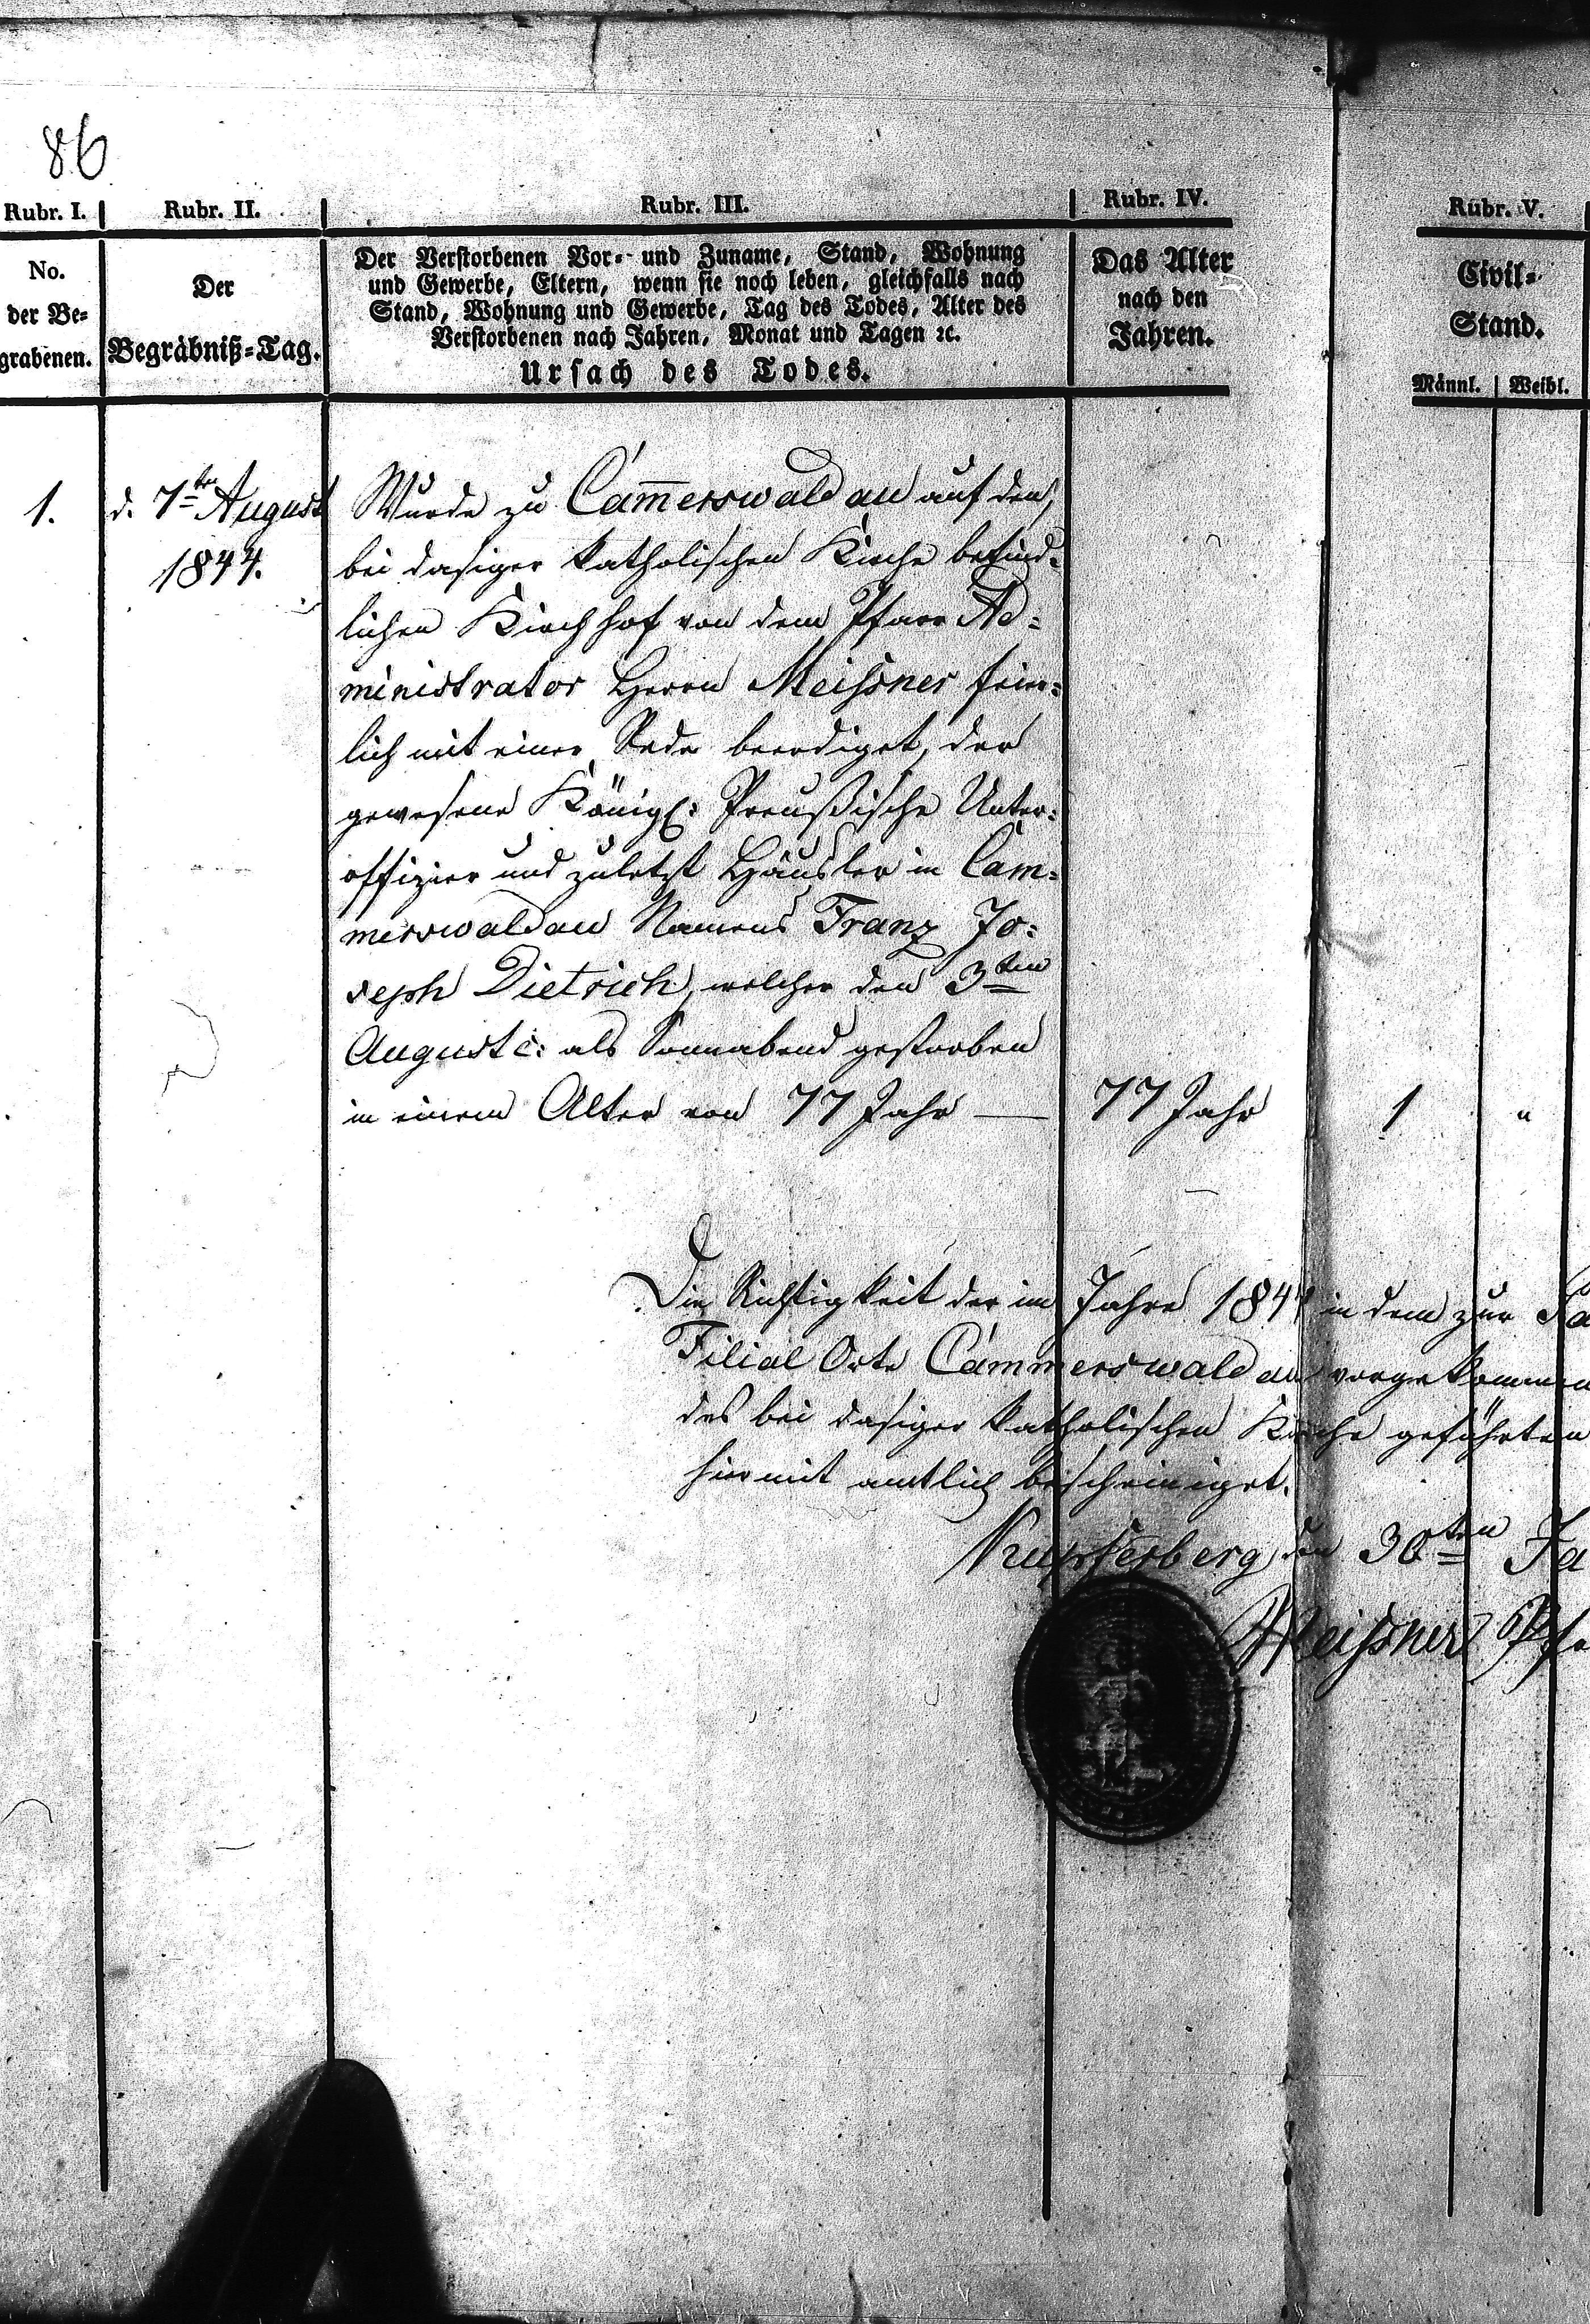 86
Rubr. I. Rubr. II. Rubr. III. Rubr. IV. Rubr. V.
No.
der Be-
grabenen.
Der
Begräbniß-Tag.
Der Verstorbenen Vor- und Zuname, Stand, Wohnung
und Gewerbe, Eltern, wenn sie noch leben, gleichfalls nach
Stand, Wohnung und Gewerbe, Tag des Todes, Alter des
Verstorbenen nach Jahren, Monat und Tagen ꝛc.
Ursach des Todes.
Das Alter
nach den
Jahren.
Civil-
Stand.
Männl. Weibl.
1.
d. 7ten August
1844.
Wurde zu Cam̅erswaldau auf den,
bei dasiger katholischen Kirche befind-
lichen Kirchhof von dem Pfarr Ad-
ministrator Herrn Meißner feier-
lich mit einer Rede beerdiget, der
gewesene Königl: Preußische Unter-
offizier und zuletzt Häusler in Cam-
merswaldau Namens Franz Jo-
seph Dietrich, welcher den 3ten
August c: als Sonnabend gestorben
in einem Alter von 77 Jahr — 77 Jahr 1 "
Die Richtigkeit der im Jahre 1844 in dem zur
Filial Orte Cammerswaldau vorgekommen
des bei dasiger katholischen Kirche geführten
hiermit amtlich bescheiniget.
Kupferberg, den 30ten Ja
Meißner Pfa